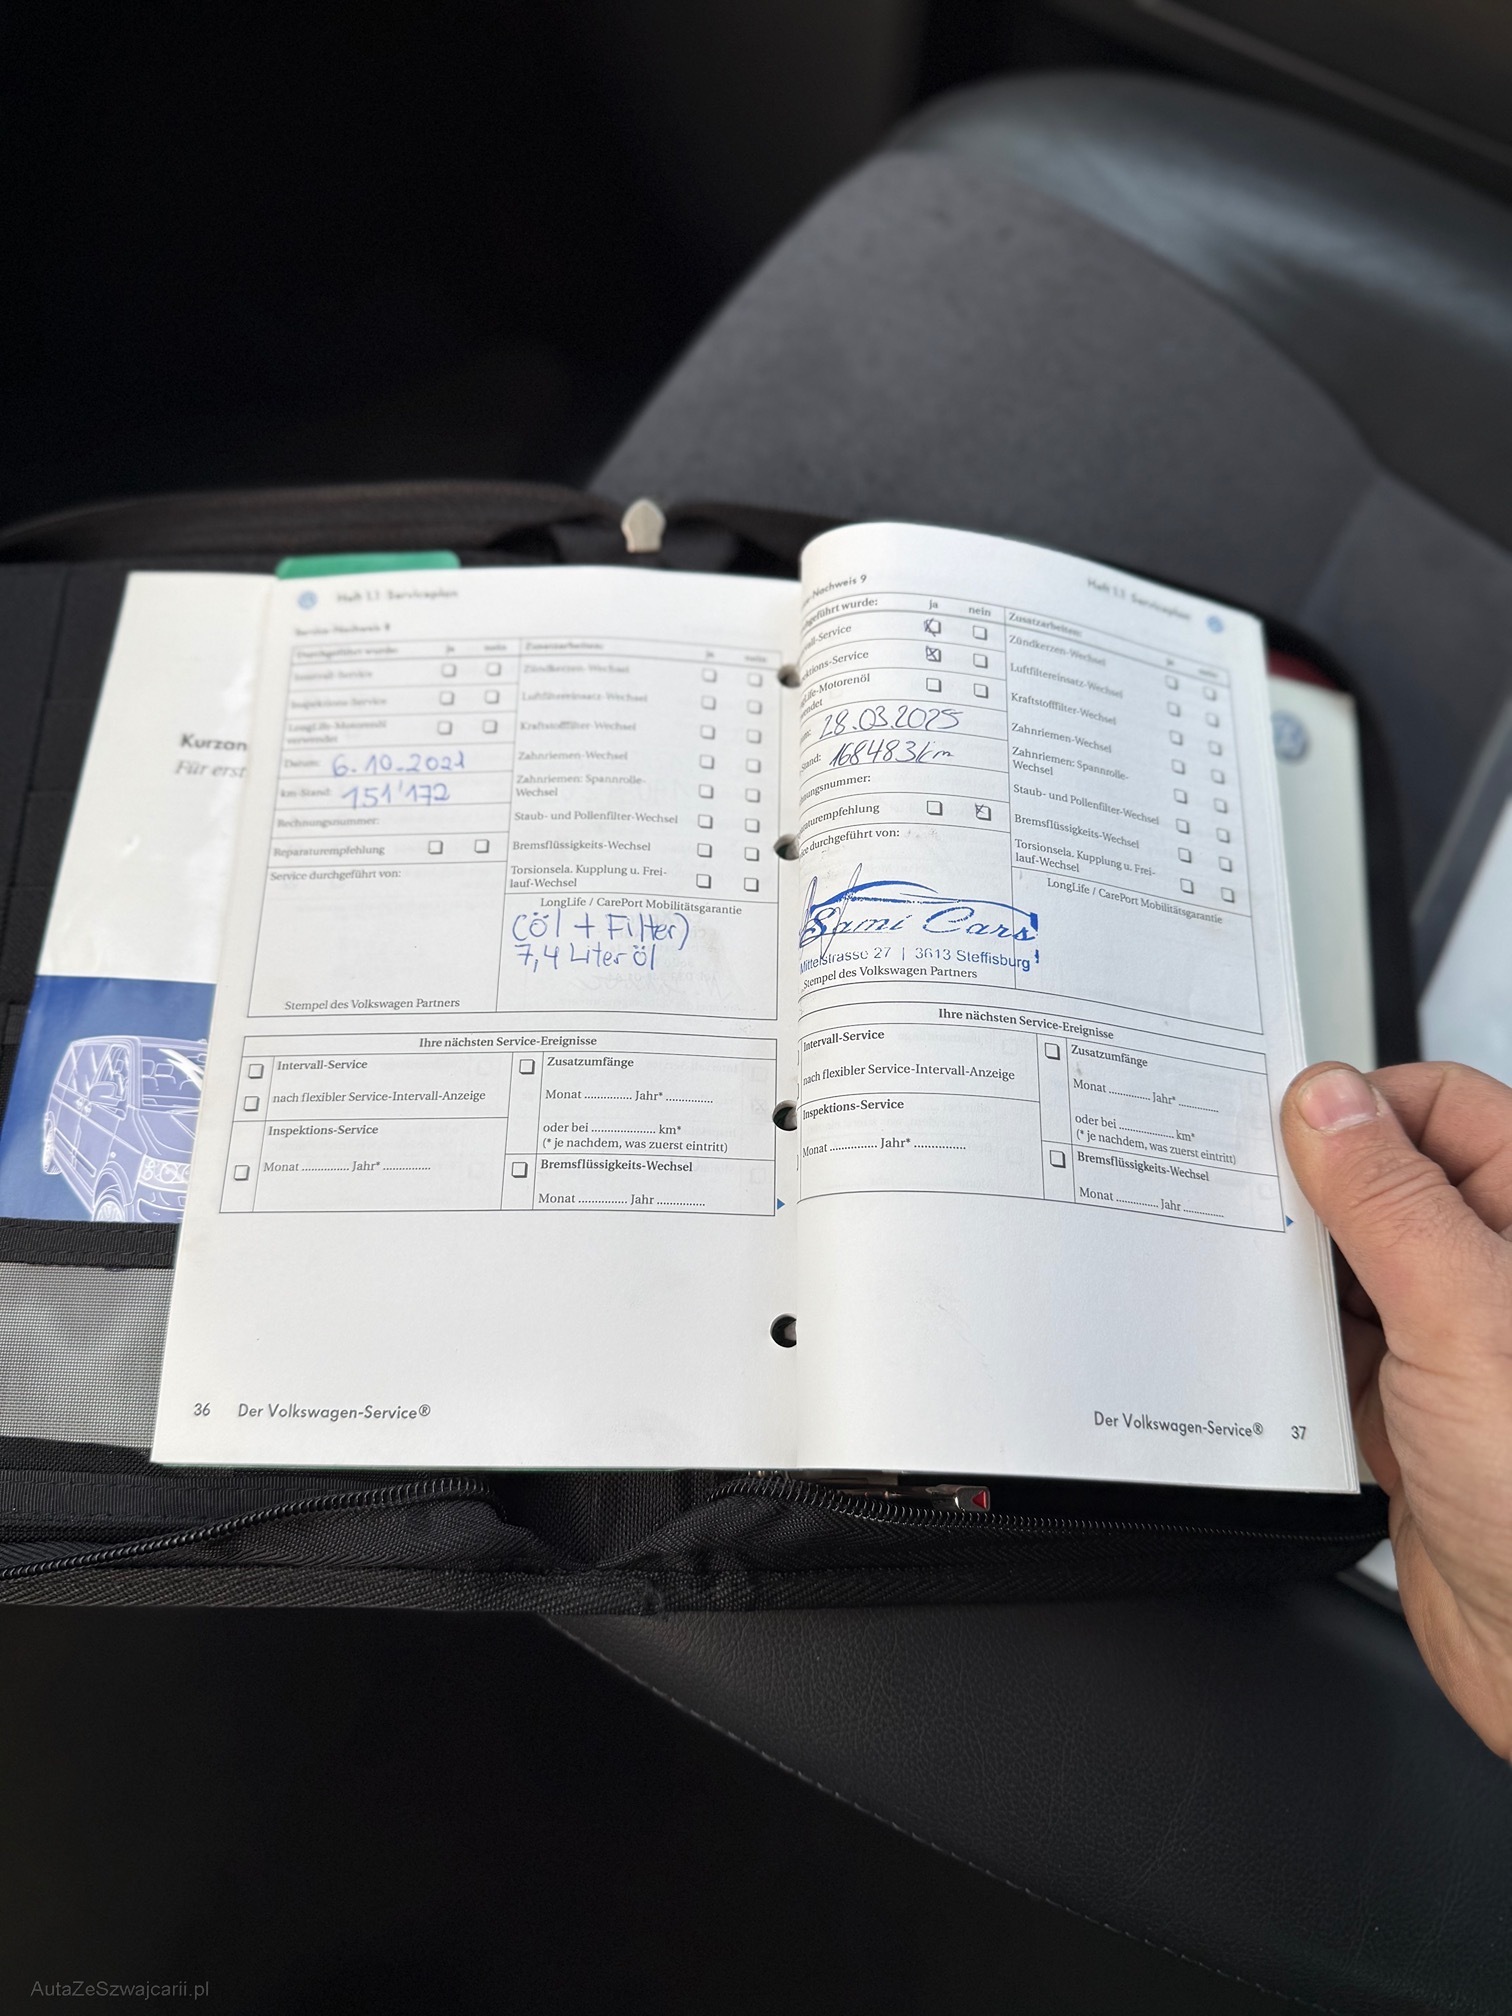 Kurzan
Für erst
Heft 1.1 Serviceplan
Service-Nachweis 8
Durchgeführt wurde: ja nein
Intervall-Service
Inspektions-Service
LongLife-Motorenöl
verwendet
Datum: 6.10.2021
km-Stand: 151'172
Rechnungsnummer:
Reparaturempfehlung
Service durchgeführt von:
Stempel des Volkswagen Partners
Zusatzarbeiten: ja nein
Zündkerzen-Wechsel
Luftfiltereinsatz-Wechsel
Kraftstofffilter-Wechsel
Zahnriemen-Wechsel
Zahnriemen: Spannrolle-
Wechsel
Staub- und Pollenfilter-Wechsel
Bremsflüssigkeits-Wechsel
Torsionsela. Kupplung u. Frei-
lauf-Wechsel
LongLife / CarePort Mobilitätsgarantie
(öl + Filter)
7,4 Liter öl
Ihre nächsten Service-Ereignisse
Intervall-Service
nach flexibler Service-Intervall-Anzeige
Inspektions-Service
Monat ............... Jahr* ...............
Zusatzumfänge
Monat ............... Jahr* ...............
oder bei .................... km*
(* je nachdem, was zuerst eintritt)
Bremsflüssigkeits-Wechsel
Monat ............... Jahr ...............
36 Der Volkswagen-Service®
Heft 1.1 Serviceplan
ce-Nachweis 9
hgeführt wurde: ja nein
all-Service
ktions-Service
Life-Motorenöl
endet
28.03.2025
-Stand: 168483km
nungsnummer:
raturempfehlung
ce durchgeführt von:
Sami Cars
Mittelstrasse 27 | 3613 Steffisburg
Stempel des Volkswagen Partners
Zusatzarbeiten: ja nein
Zündkerzen-Wechsel
Luftfiltereinsatz-Wechsel
Kraftstofffilter-Wechsel
Zahnriemen-Wechsel
Zahnriemen: Spannrolle-
Wechsel
Staub- und Pollenfilter-Wechsel
Bremsflüssigkeits-Wechsel
Torsionsela. Kupplung u. Frei-
lauf-Wechsel
LongLife / CarePort Mobilitätsgarantie
Ihre nächsten Service-Ereignisse
Intervall-Service
nach flexibler Service-Intervall-Anzeige
Inspektions-Service
Monat ............... Jahr* ...............
Zusatzumfänge
Monat ............... Jahr* ...............
oder bei .................... km*
(* je nachdem, was zuerst eintritt)
Bremsflüssigkeits-Wechsel
Monat ............... Jahr ...............
Der Volkswagen-Service® 37
AutaZeSzwajcarii.pl